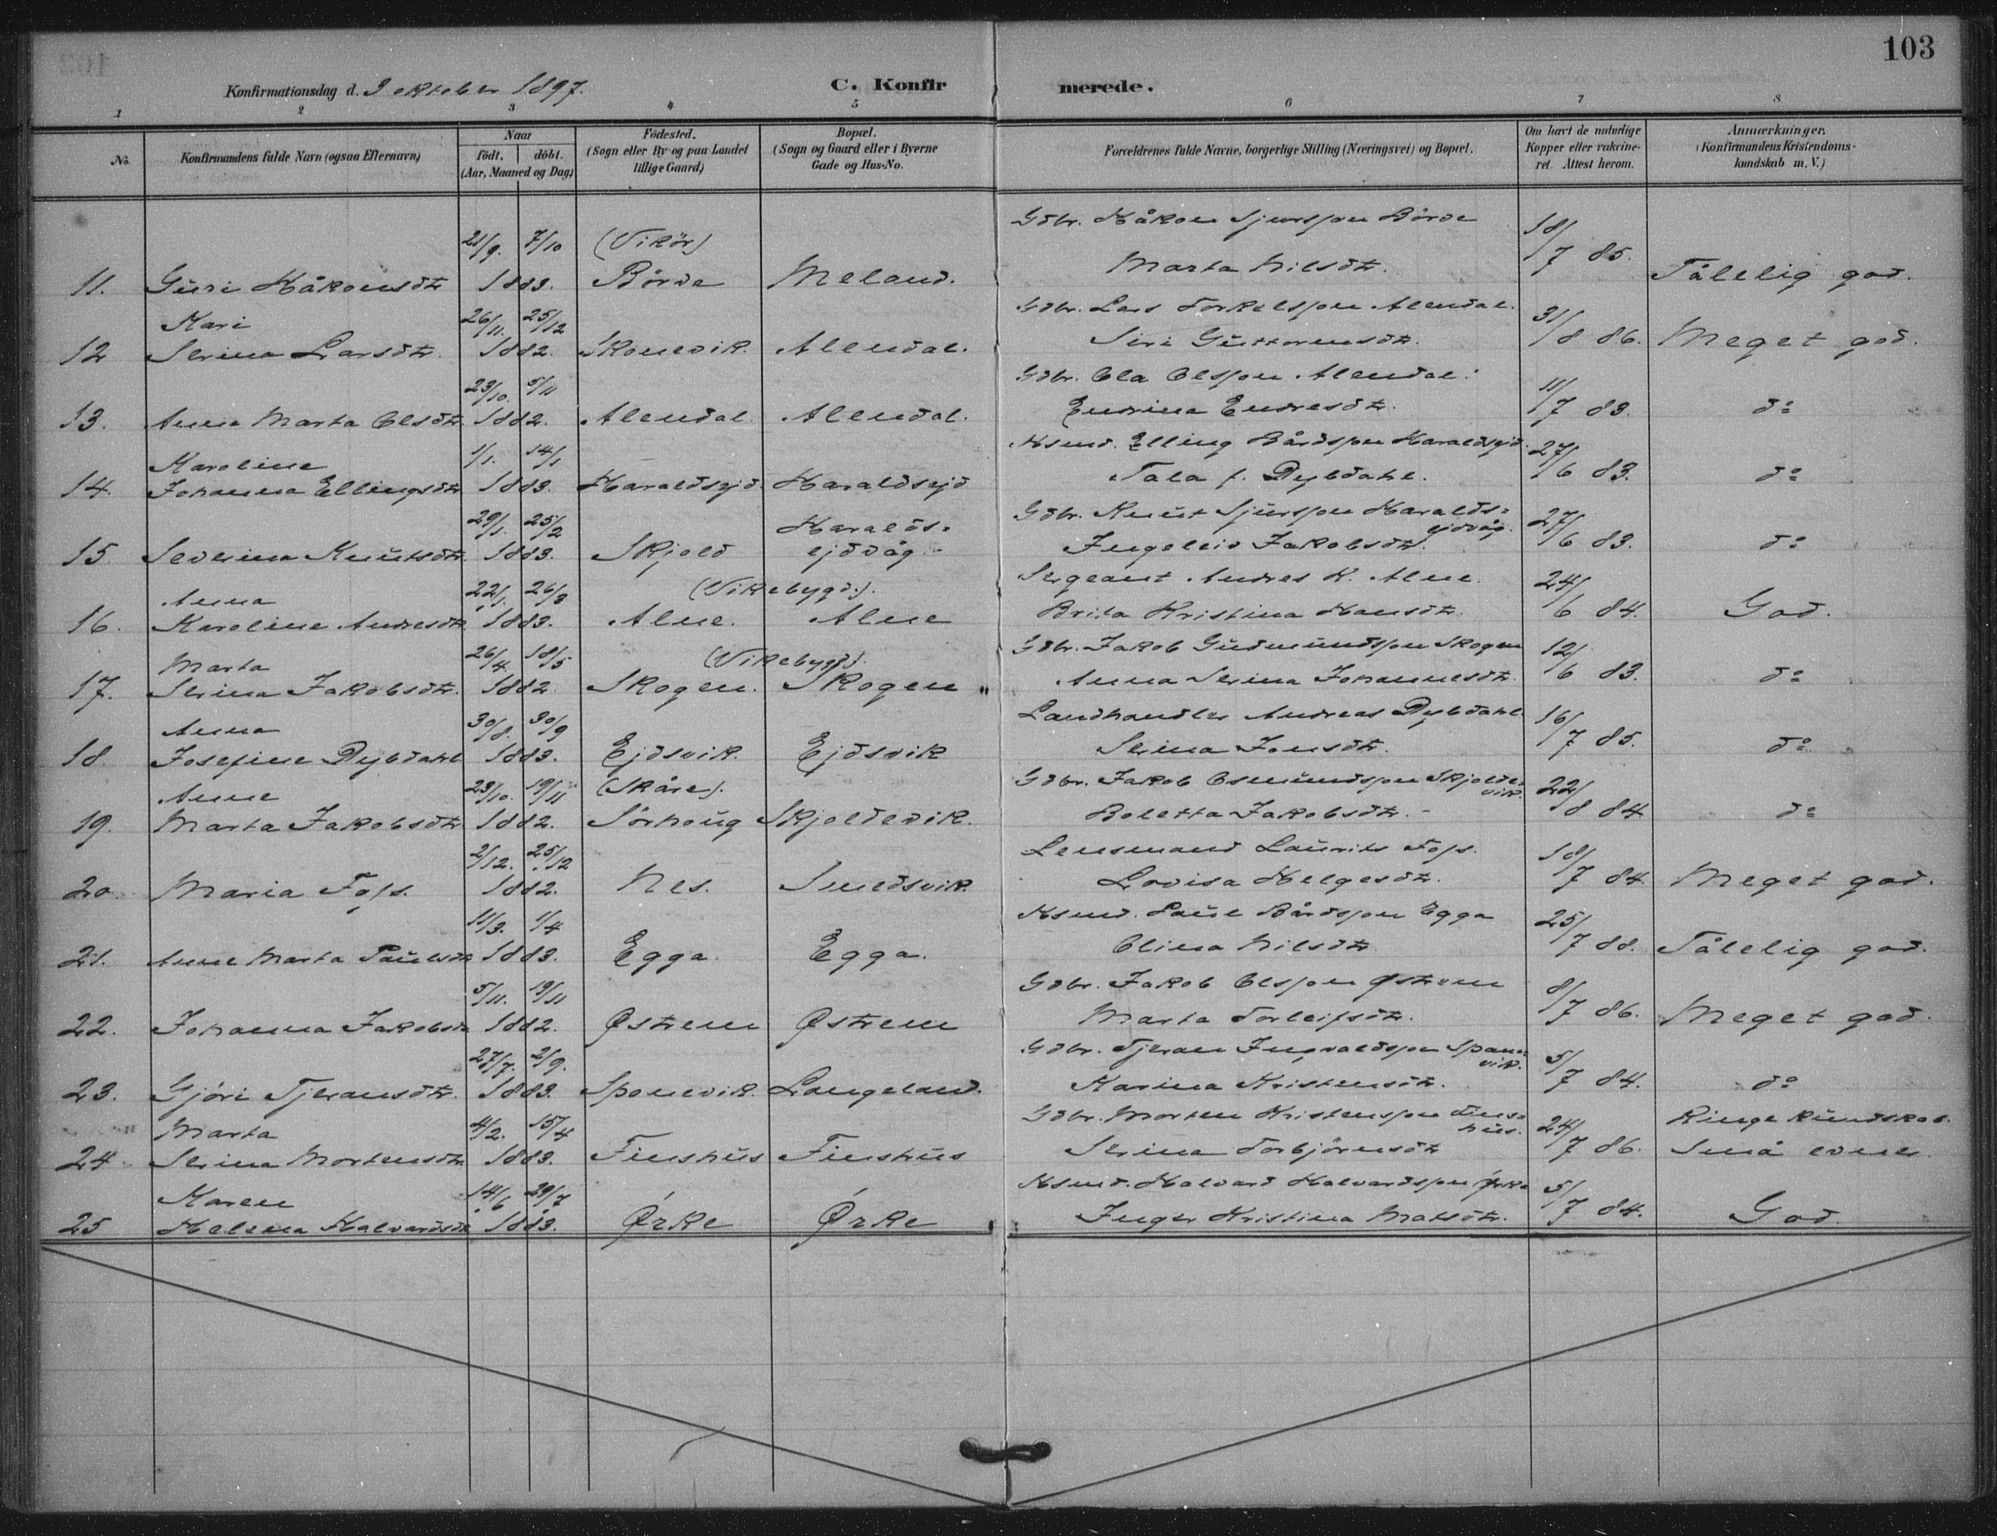 103
Konfirmationsdag d. 3 oktober 1897.
C. Konfirmerede.
1 2 3 4 5 6 7 8
No.
Konfirmandens fulde Navn (ogsaa Efternavn)
Naar
födt. döbt.
(Aar, Maaned og Dag)
Födested.
(Sogn eller By og paa Landet
tillige Gaard)
Bopæl.
(Sogn og Gaard eller i Byerne
Gade og Hus-No.
Forældrenes fulde Navne, borgerlige Stilling (Næringsvei) og Bopæl.
Om havt de naturlige
Kopper eller vakcine-
ret. Attest herom.
Anmærkninger.
(Konfirmandens Kristendoms-
kundskab m. V.)
21/9. 7/10 (Vikör) Gdbr. Håkon Sjursson Börve 18/7 85.
11. Guri Håkonsdtr 1883. Börve Meland. Marta Nilsdtr. Tålelig god.
Kari 26/11. 25/12 Gdbr. Lars Torkelsson Alendal. 31/8 86.
12 Serina Larsdtr. 1882. Skonevik. Alendal. Siri Guttormsdtr. Meget god.
23/10. 5/11 Gdbr. Ola Olsson Alendal. 11/7 83.
13. Anna Marta Olsdtr. 1882. Alendal. Alendal. Endrina Endresdtr. do
Karoline 1/1. 14/1 Hsmd. Elling Bårdsson Haraldsejd. 27/6 83.
14. Johanna Ellingsdtr 1883. Haraldsejd. Haraldsejd Tala f. Dybdahl. do
29/1. 25/2 Haralds- Gdbr. Knut Sjursson Haralds-
ejdvåg. 27/6 83.
15. Severina Knutsdtr. 1883. Skjold ejdvåg. Ingeleiv Jakobsdtr. do
Anna 22/1. 26/3 (Vikebygd). Sergeant Andres K. Alne. 24/6 84.
16. Karoline Andresdtr. 1883. Alne. Alne Brita Kristina Hansdtr. God.
Marta 26/4. 18/5 (Vikebygd). Gdbr. Jakob Gudmundsson Skogen 12/6 83.
17. Serina Jakobsdtr. 1882. Skogen. Skogen " Anna Serina Johannesdtr. do
Anna 30/8. 30/9 Landhandler Andreas Dybdahl 16/7 85.
18. Josefine Dybdahl 1883. Ejdsvik. Ejdsvik Serina Jonsdtr. do
Anne 23/10. 19/11 (Skåre). Gdbr. Jakob Osmundsson Skjolde-
vik. 22/8 84
19. Marta Jakobsdtr 1882. Sörhoug Skjoldevik. Boletta Jakobsdtr. do
2/12. 25/12 Lensmand Laurits Foss. 18/7 84.
20. Maria Foss. 1882. Nes. Smedsvik. Lovisa Helgesdtr. Meget god.
11/3. 1/4 Hsmd. Paul Bårdsson Egga 25/7 88.
21. Anne Marta Paulsdtr 1883. Egga. Egga. Olina Nilsdtr. Tålelig god.
5/11. 19/11 Gdbr. Jakob Olsson Østrem 8/7 86.
22. Johanna Jakobsdtr 1882. Østrem Østrem Marta Torleifsdtr. Meget god.
27/7. 2/9. Gdbr. Tjeran Ingvaldsson Spone-
vik. 5/7 84.
23. Gjöri Tjeransdtr. 1883. Sponevik. Langeland. Karina Kristensdtr. do
Marta 4/2. 15/4 Gdbr. Morten Kristensson Fins-
hus. 24/7 86. Ringe kundskab.
24 Serina Mortensdtr 1883. Finshus Finshus Serina Torbjörnsdtr Små evner.
Karen 14/6 29/7 Hsmd. Halvard Halvardsson Ørke 5/7 84.
25 Helena Halvardsdtr 1883. Ørke Ørke Inger Kristina Matsdtr. God.